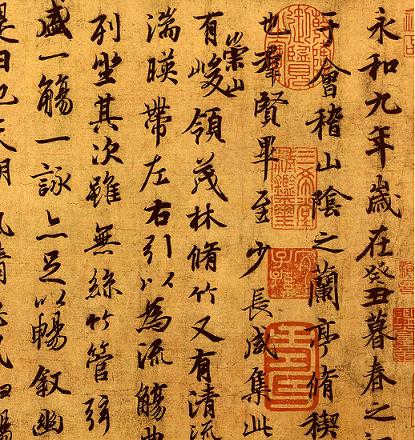 永和九年歲在癸丑暮春之初
于會稽山陰之蘭亭脩稧
也羣賢畢至少長咸集此
有崇山峻領茂林脩竹又有清流
湍暎帶左右引以為流觴曲
列坐其次雖無絲竹管弦
盛一觴一詠亦足以暢敘幽
是日也天朗氣清
三希堂精鑑璽
宜子孫